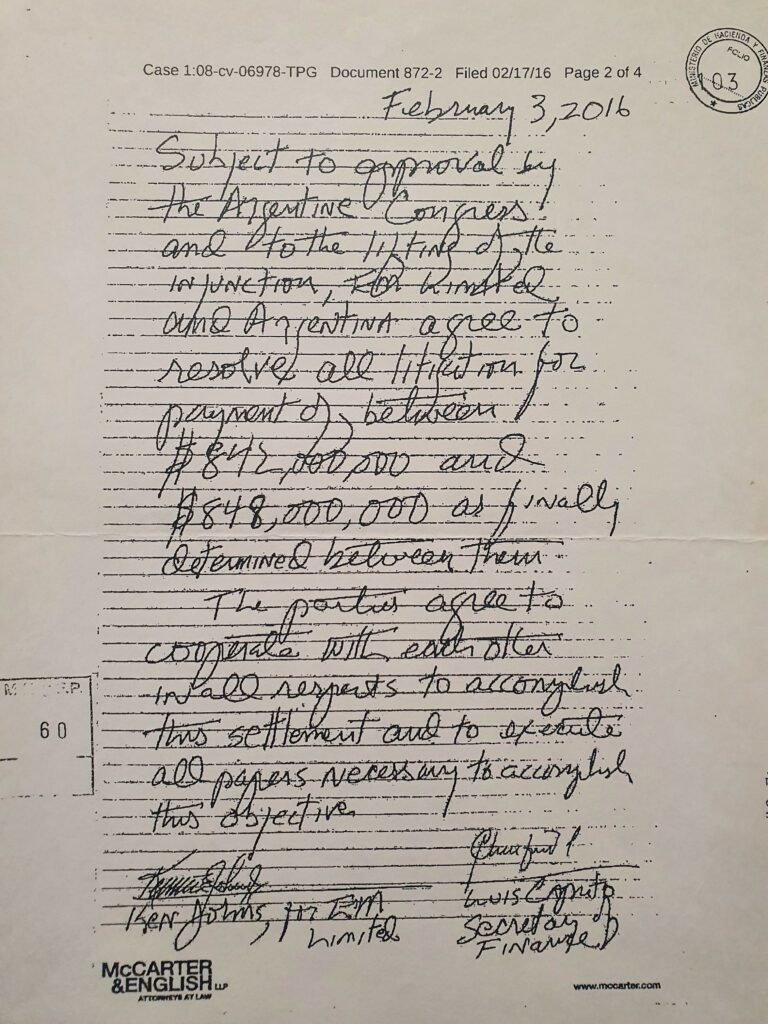 MINISTERIO DE HACIENDA Y FINANZAS PUBLICAS
FOLIO
103
Case 1:08-cv-06978-TPG Document 872-2 Filed 02/17/16 Page 2 of 4
February 3, 2016
Subject to approval by
the Argentine Congress
and to the lifting of the
injunction, EM Limited
and Argentina agree to
resolve all litigation for
payment of between
$842,000,000 and
$848,000,000 as finally
determined between them
The parties agree to
cooperate with each other
in all respects to accomplish
this settlement and to execute
60
all papers necessary to accomplish
this objective
Luis Caputo
Ken   , for EM
Limited
Secretary of
Finance
McCARTER
&ENGLISH LLP
ATTORNEYS AT LAW
www.mccarter.com